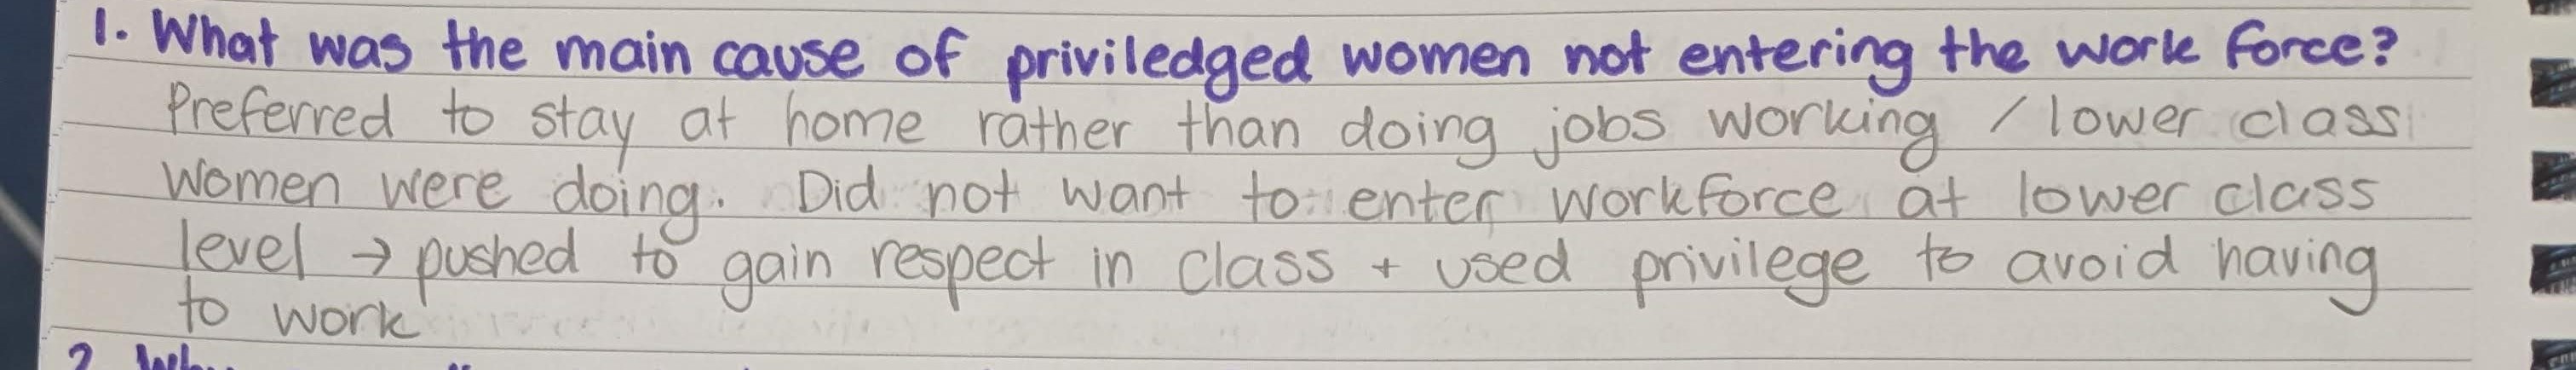 1. What was the main cause of priviledged women not entering the work force?
Preferred to stay at home rather than doing jobs working / lower class
women were doing. Did not want to enter workforce at lower class
level → pushed to gain respect in class + used privilege to avoid having
to work
2.